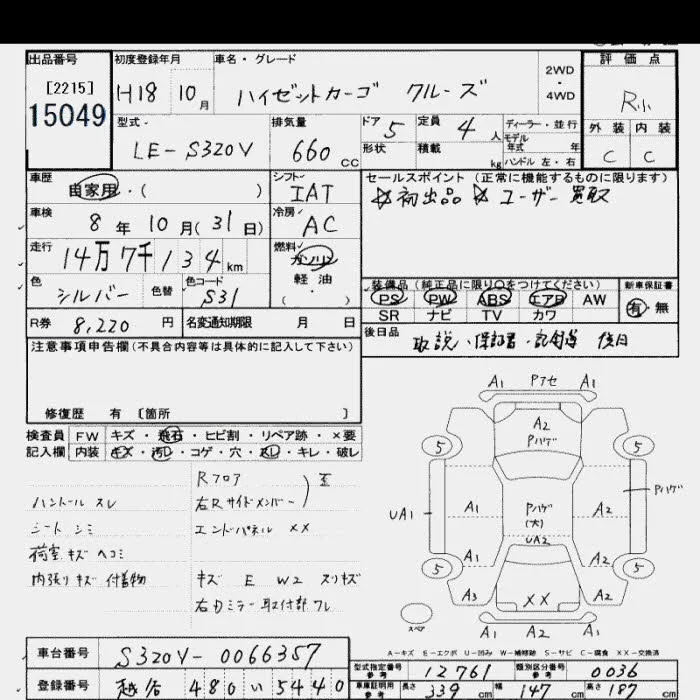 出品番号 初度登録年月 車名・グレード 評価点
[2215] H18 10月 ハイゼットカーゴ クルーズ 2WD・4WD R小
15049
型式 排気量 ドア 5 定員 4人 ディーラー・並行 外装 内装
LE-S320V 660cc 形状 積載 kg モデル年式 年 C C
ハンドル 左・右
車歴 自家用・( ) シフト IAT セールスポイント(正常に機能するものに限ります)
☆初出品 ☆ユーザー買取
車検 8年 10月(31日) 冷房 AC
走行 14万7千134km 燃料 ガソリン 軽油 ( ・ )
色 シルバー 色替 色コード S31 装備品(純正品に限り○をつけてください) 新車保証書
PS PW ABS エアB AW 有・無
SR ナビ TV カワ
R券 8,220円 名変通知期限 月 日 後日品 取説、保証書・記録簿 後日
注意事項申告欄(不具合内容等は具体的に記入して下さい)
修復歴 有 〔箇所 〕
検査員 FW キズ・飛石・ヒビ割・リペア跡・×要
記入欄 内装 キズ・汚レ・コゲ・穴・スレ・キレ・破レ
Rフロア
ハンドル スレ 右Rサイドメンバー
シート シミ エンドパネル XX
荷室 キズ ヘコミ
内張り キズ 付着物 キズ E W2 スリキズ
右Dミラー取付部
A1 Pアセ A1
A2
Pハゲ
5 5
Pハゲ
UA1 A1 Pハゲ A2
(大)
UA2
A1 A2
5 5
A3 XX A2
スペア A2 A2 A1
A-キズ E-エクボ U-凹み W-補修跡 S-サビ C-腐食 XX-交換済
車台番号 S320V-0066357
型式指定番号 参考 12761 類別区分番号 参考 0036
登録番号 越谷 480 い 5440
車庫証明用 参考 長さ 339cm 幅 147cm 高さ 187cm